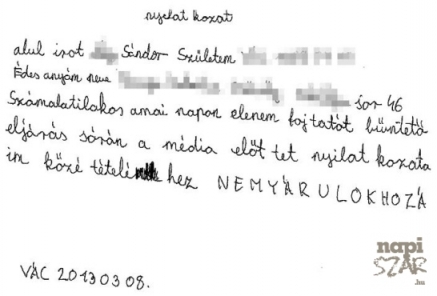 nyelat kozat
alul irot Sándor Születem
Édes anyám neve sor 46
Számalatilakos amai napon elenem fojtatót büntető
eljárás során a média előt tet nyilat kozata
im közé tételé hez NEMYÁRULOKHOZÁ
VÁC 2013 03 08.
napi
SZAR
.hu